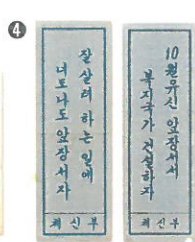 ❹
잘 살려 하는 일에
너도나도 앞장서자
체신부
10월유신 앞장서서
복지국가 건설하자
체신부